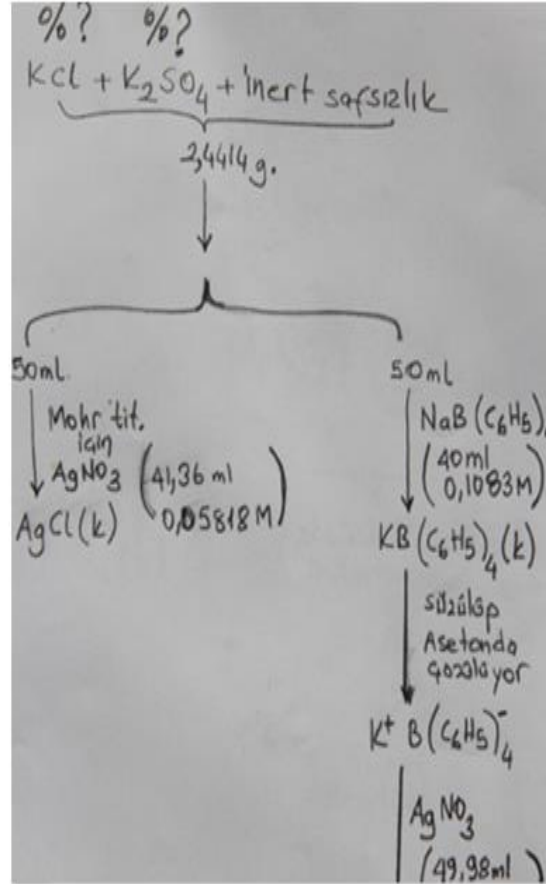 %? %?
KCl + K₂SO₄ + inert safsızlık
2,4414 g.
50ml
Mohr tit.
için
AgNO₃ (41,36 ml
0,05818 M)
AgCl(k)
50ml
NaB(C₆H₅)
(40ml
0,1083M)
KB(C₆H₅)₄(k)
süzülüp
Asetonda
çözülüyor
K⁺ B(C₆H₅)₄⁻
AgNO₃
(49,98ml)